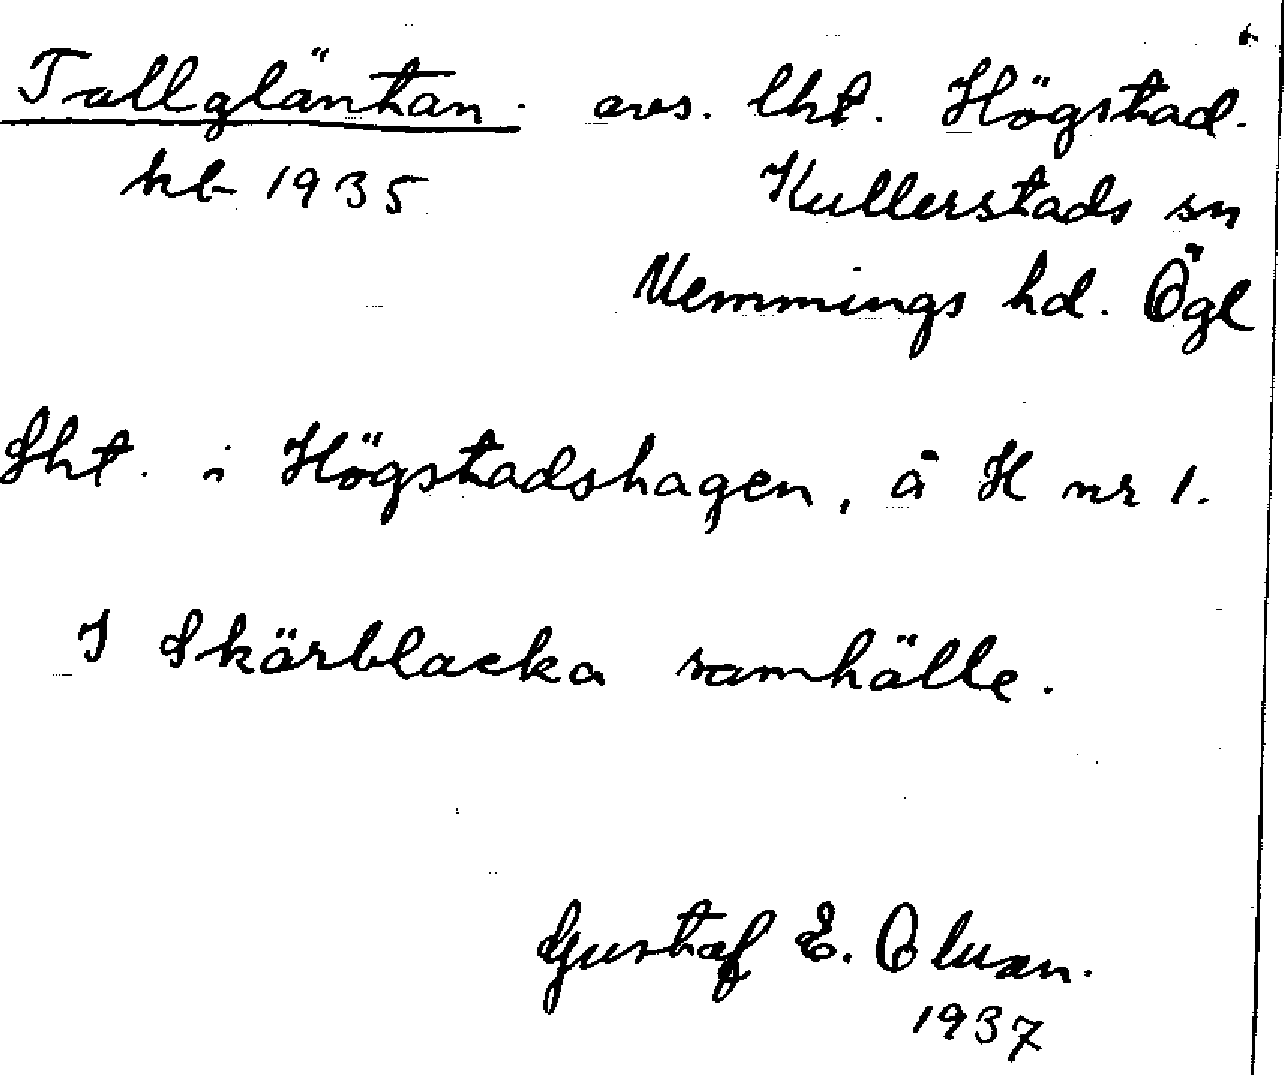 Tallgläntan. avs. lht. Högstad.
kb 1935 Kullerstads sn
Memmings hd. Ögl
Lht. i Högstadshagen, å H nr 1.
I Skärblacka samhälle.
Gustaf E.
1937